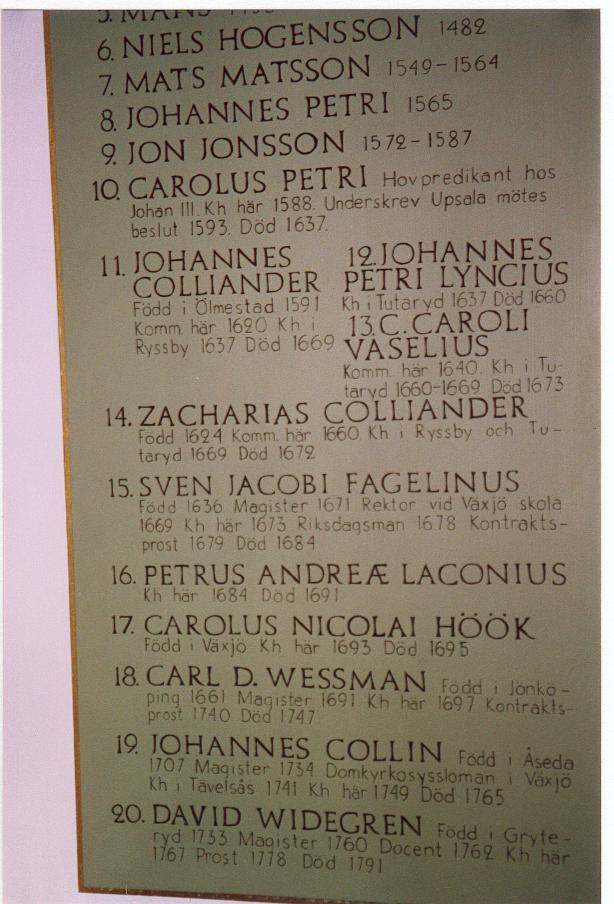 5. MÅNS
6. NIELS HOGENSSON 1482
7. MATS MATSSON 1549-1564
8. JOHANNES PETRI 1565
9. JON JONSSON 1572-1587
10. CAROLUS PETRI Hovpredikant hos
Johan III. Kh här 1588. Underskrev Upsala mötes
beslut 1593. Död 1637.
11. JOHANNES
COLLIANDER
Född i Ölmestad 1591
Komm. här 1620 Kh i
Ryssby 1637 Död 1669
12. JOHANNES
PETRI LYNCIUS
Kh i Tutaryd 1637 Död 1660
13. C. CAROLI
VASELIUS
Komm. här 1640. Kh i Tu-
taryd 1660-1669 Död 1673
14. ZACHARIAS COLLIANDER
Född 1624 Komm. här 1660. Kh i Ryssby och Tu-
taryd 1669. Död 1672
15. SVEN JACOBI FAGELINUS
Född 1636 Magister 1671 Rektor vid Växjö skola
1669 Kh här 1673 Riksdagsman 1678 Kontrakts-
prost 1679 Död 1684
16. PETRUS ANDREÆ LACONIUS
Kh här 1684 Död 1691
17. CAROLUS NICOLAI HÖÖK
Född i Växjö Kh här 1693 Död 1695
18. CARL D. WESSMAN Född i Jönkö-
ping 1661 Magister 1691 Kh här 1697 Kontrakts-
prost 1740 Död 1747
19. JOHANNES COLLIN Född i Åseda
1707 Magister 1734 Domkyrkosyssloman i Växjö
Kh i Tävelsås 1741 Kh här 1749 Död 1765
20. DAVID WIDEGREN Född i Gryte-
ryd 1733 Magister 1760 Docent 1762 Kh här
1767 Prost 1778 Död 1791